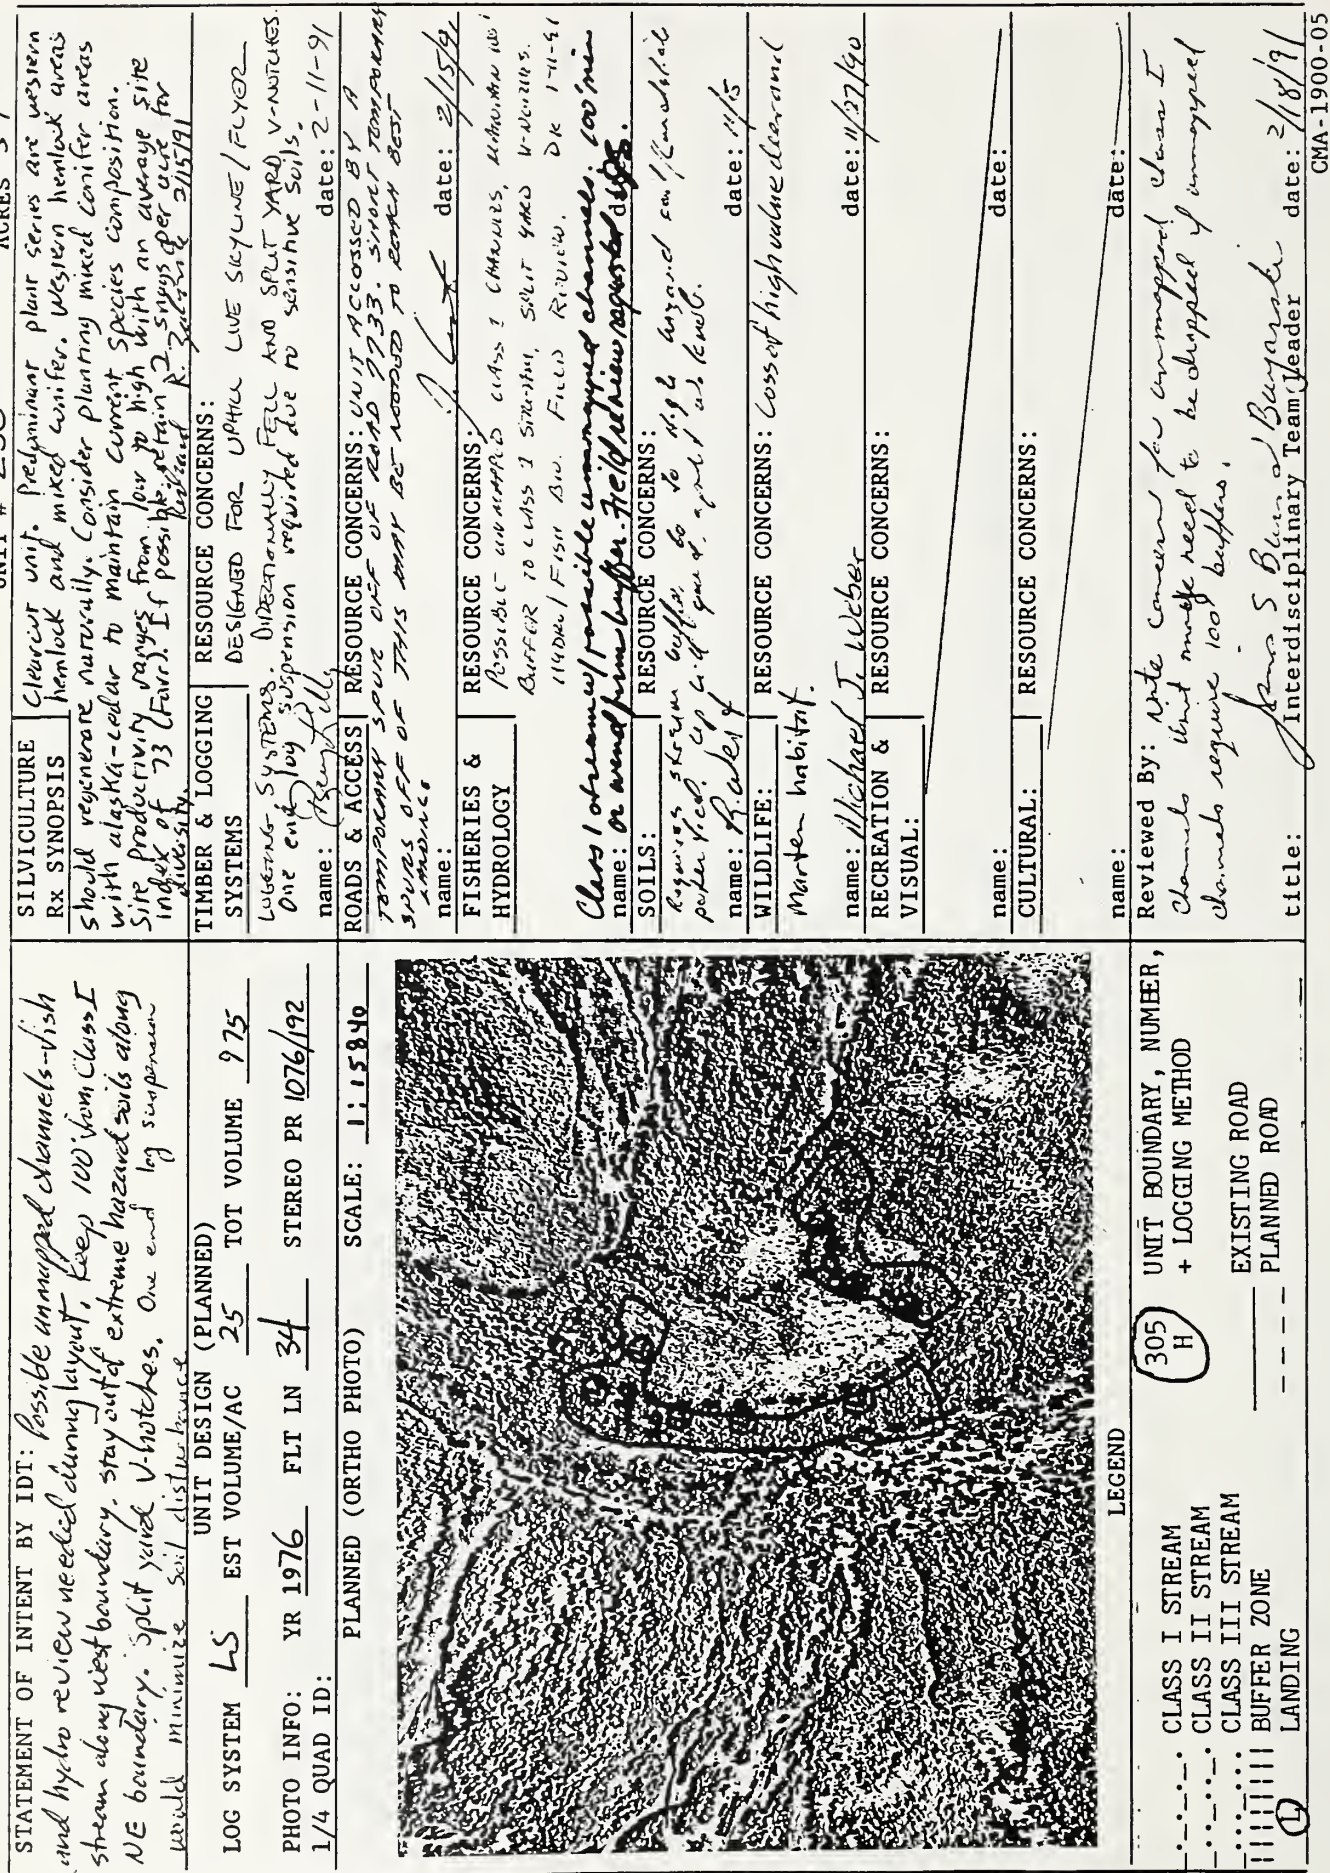 STATEMENT OF INTENT BY IDT: Possible unmapped channels-fish
and hydro review needed during layout, keep 100' from Class I
stream along west boundary, stay out of extreme hazard soils along
NE boundary. Split yard V-notches. One end log suspension
would minimize soil disturbance
UNIT DESIGN (PLANNED)
LOG SYSTEM LS EST VOLUME/AC 25 TOT VOLUME 975
PHOTO INFO: YR 1976 FLT LN 34 STEREO PR 1076/192
1/4 QUAD ID:
PLANNED (ORTHO PHOTO) SCALE: 1:15840
LEGEND
CLASS I STREAM
CLASS II STREAM
CLASS III STREAM
BUFFER ZONE
L LANDING
305
H
UNIT BOUNDARY, NUMBER,
+ LOGGING METHOD
EXISTING ROAD
PLANNED ROAD
UNIT # ACRES
SILVICULTURE
Rx SYNOPSIS
Clearcut unit. Predominant plant series are western
hemlock and mixed conifer. Western hemlock areas
should regenerate naturally. Consider planting mixed conifer areas
with alaska-cedar to maintain current species composition.
Site Productivity ranges from low to high with an average site
index of 73 (Farr). If possible, retain 2 snags per acre for
diversity. 2/15/91
TIMBER & LOGGING
SYSTEMS
RESOURCE CONCERNS:
DESIGNED FOR UPHILL LIVE SKYLINE/FLYER
LOGGING SYSTEMS. DIRECTIONALLY FELL AND SPLIT YARD V-NOTCHES.
One end log suspension required due to sensitive soils.
name: date: 2-11-91
ROADS & ACCESS
RESOURCE CONCERNS: UNIT ACCESSED BY A
TEMPORARY SPUR OFF OF ROAD 7733. SHORT TEMPORARY
SPURS OFF OF THIS MAY BE ADDED TO REACH BEST
LANDINGS
name: date: 2/15/91
FISHERIES &
HYDROLOGY
RESOURCE CONCERNS:
POSSIBLE UNMAPPED CLASS I CHANNELS, MAINTAIN 100'
BUFFER TO CLASS I STREAM, SPLIT YARD V-NOTCHES.
HYDRO/FISH BIO. FIELD REVIEW. DK 1-11-91
Class I stream w/ possible unmapped channels. 100' min
or wind firm buffer. Field review required
name: date:
SOILS:
RESOURCE CONCERNS:
Requires stream buffer, to high hazard soil
name: date: 11/15
WILDLIFE:
RESOURCE CONCERNS: Loss of high value deer and
Marten habitat.
name: Michael J. Weber date: 11/27/90
RECREATION &
VISUAL:
RESOURCE CONCERNS:
name: date:
CULTURAL:
RESOURCE CONCERNS:
name: date:
Reviewed By: Note concern for unmapped class I
channels Unit may need to be dropped if unmapped
channels require 100' buffers.
title: Interdisciplinary Team Leader date: 2/18/91
CMA-1900-05